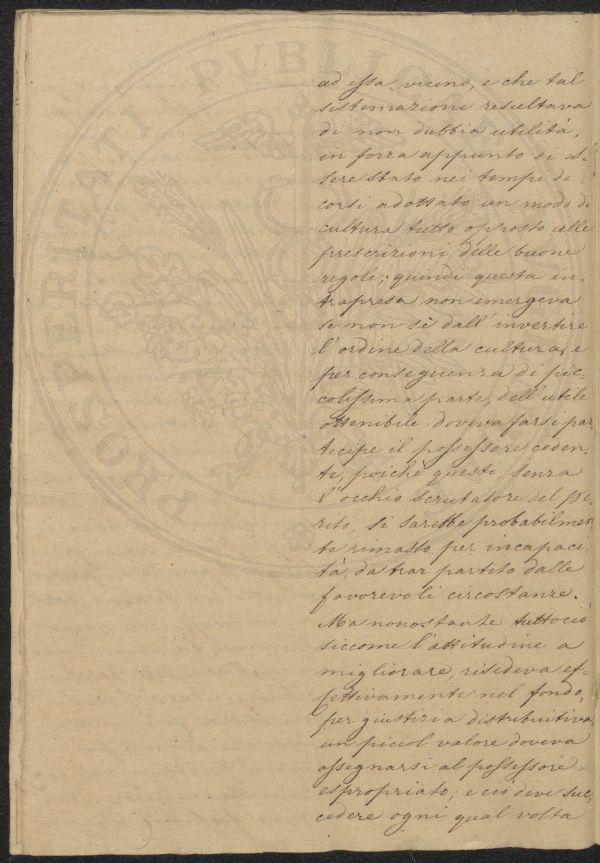 ad essa vicino, e che tal
sistemazione resultava
di non dubbia utilità,
in forza appunto di es-
sere stato nei tempi de-
corsi adottato un modo di
cultura tutto opposto alle
prescrizioni delle buone
regoli; quindi questa in-
trapresa non emergeva
se non sè dall'invertire
l'ordine della cultura, e
per conseguenza di pic-
colissima parte, dell'utile
ottenibile doveva farsi par-
tecipe il possessore ceden-
te, poichè questi, senza
l'occhio scrutatore del pe-
rito, si sarebbe probabilmen-
te rimasto, per incapaci-
tà, da trar partito dalle
favorevoli circostanze.
Ma nonostante tuttociò
siccome l'attitudine a
migliorare, risedeva ef-
fettivamente nel fondo,
per giustizia distribuitiva
un picciol valore doveva
assegnarsi al possessore
espropriato; e ciò deve suc-
cedere ogni qual volta
PROSPERITATI PUBLICAE